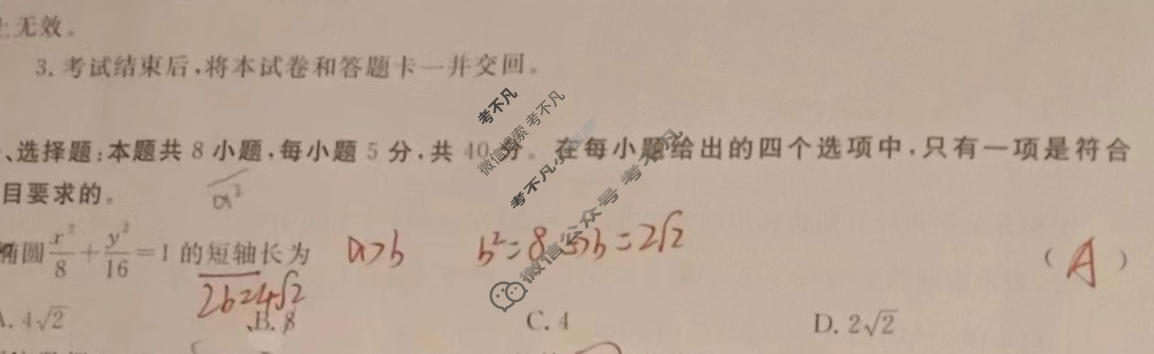 上无效。
3. 考试结束后,将本试卷和答题卡一并交回。
、选择题:本题共 8 小题,每小题 5 分,共 40 分。在每小题给出的四个选项中,只有一项是符合
目要求的。
a²
椭圆 x²/8 + y²/16 = 1 的短轴长为 a>b b²=8 ⇒b=2√2 ( A )
2b=4√2
A. 4√2 B. 8 C. 4 D. 2√2
考不凡
微信搜索 考不凡
考不凡
微信公众号 考不凡